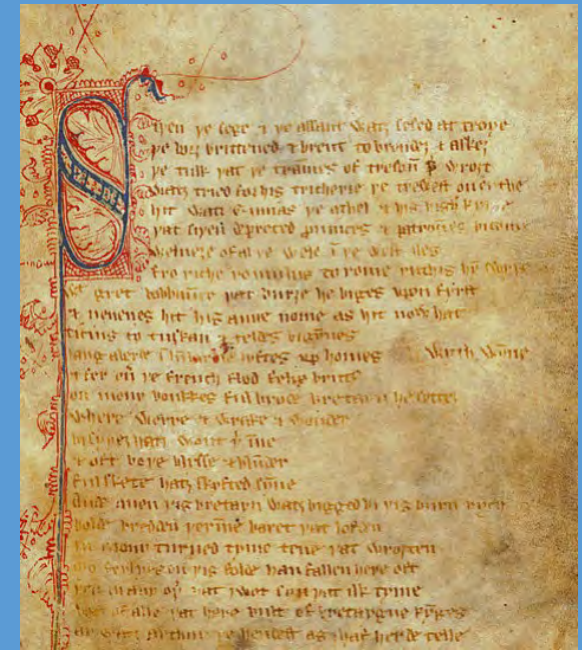 Siþen þe sege & þe assaut watz sesed at troye
þe borȝ brittened & brent to brondeȝ & askez
þe tulk þat þe trames of tresoun þ wroȝt
watz tried for his tricherie þe trewest on erthe
hit watz Ennias þe athel & his highe kynde
þat siþen depreced prouinces & patrounes bicome
welneȝe of al þe wele ī þe west iles
fro riche romulus to rome ricchis hȳ
gret bobbaūce þat burȝe he biges vpon fyrst
& neuenes hit his aune nome as hit now hat
ticius to tuskan & teldes bigȳnes
lyftes vp homes wyth wȳne
& fer oū þe french flod felix brutus
on mony bonkkes ful brode bretayn he settez
where werre & wrake & wonder
bi syþez hatz wont þ īne
& oft boþe blysse & blunder
ful skete hatz skyfted sȳne
Ande quen þis bretayn watz bigged bi þis burn rych
bolde bredden þerīne baret þat lofden
mony turned tyme tene þat wroȝten
mo ferlyes on þis folde han fallen here oft
þen in any oþ þat I wot syn þat ilk tyme
bot of alle þat here bult of bretaygne kȳges
ay watz arthur þe hendest as I haf herde telle